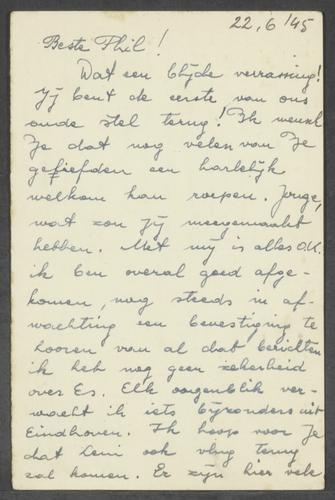 22.6 '45
Beste Phil!
Wat een blijde verrassing!
Jij bent de eerste van ons
oude stel terug! Ik wensch
Je dat nog velen van Je
geliefden een hartelijk
welkom kan roepen. Jonge,
wat zou jij meegemaakt
hebben. Met mij is alles O.K.
ik ben overal goed afge-
komen, nog steeds in af-
wachting een bevestiging te
hooren van al dat berichten
ik heb nog geen zekerheid
over Es. Elk oogenblik ver-
wacht ik iets bijzonders uit
Eindhoven. Ik hoop voor Je
dat Leni ook vlug terug
zal komen. Er zijn hier vele